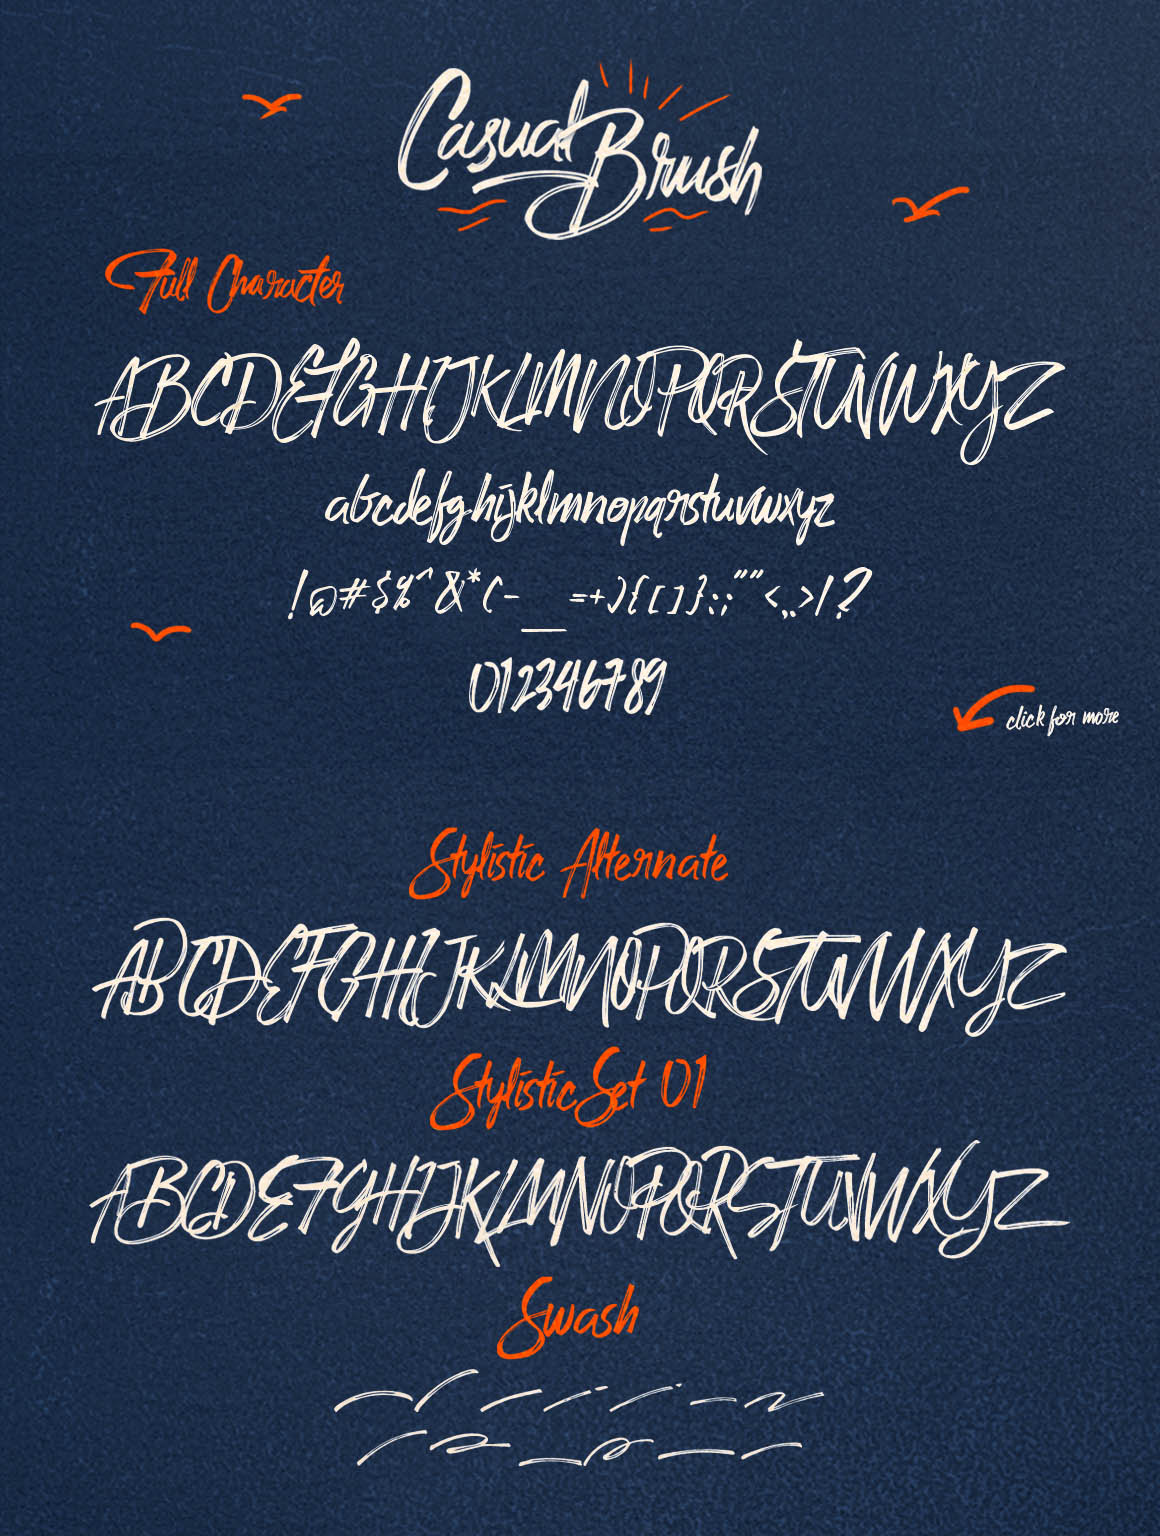 Casual Brush
Full Character
ABCDEFGHIJKLMNOPQRSTUVWXYZ
abcdefghijklmnopqrstuvwxyz
!@#$%^&*(-_=+){[]}:;""<,.>/?
012346789
click for more
Stylistic Alternate
ABCDEFGHIJKLMNOPQRSTUVWXYZ
Stylistic Set 01
ABCDEFGHIJKLMNOPQRSTUVWXYZ
Swash